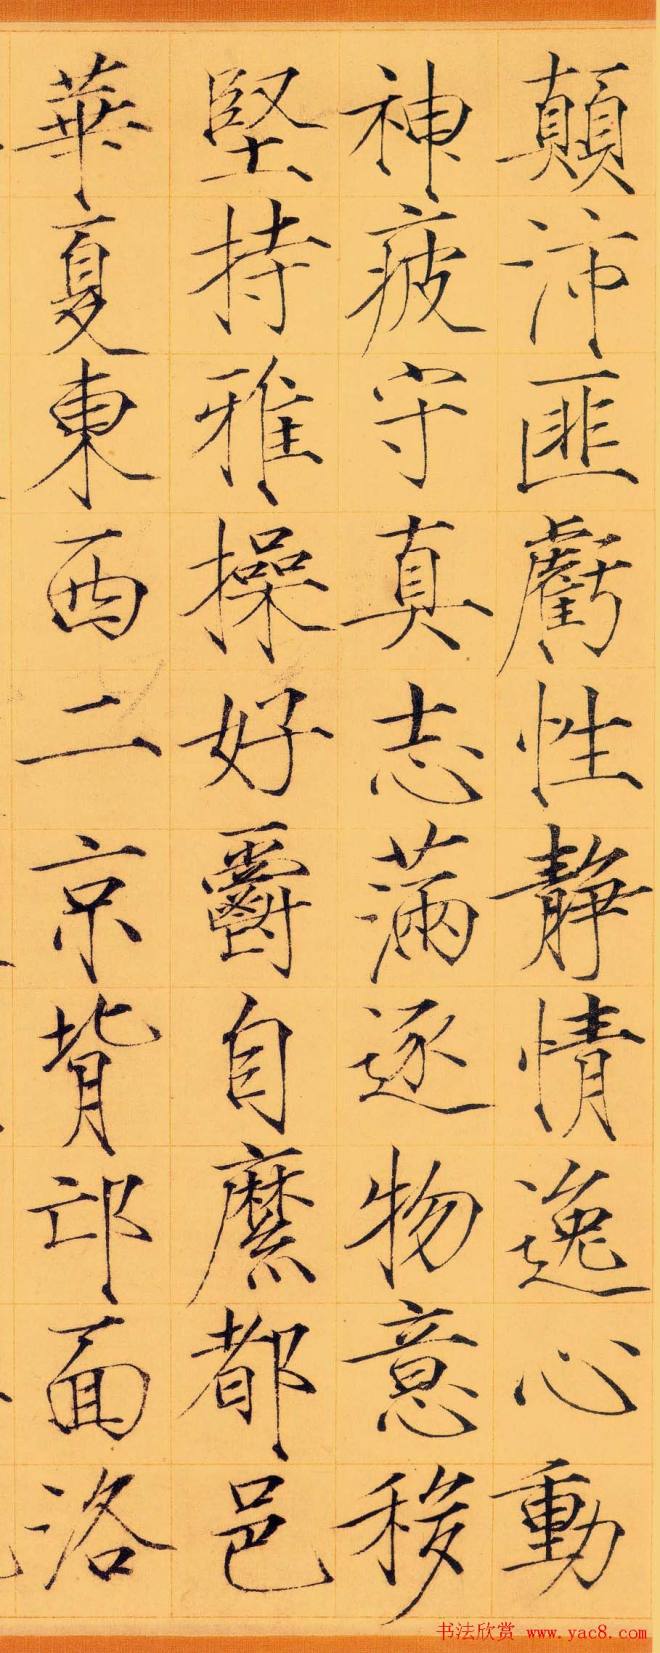 顛沛匪虧性靜情逸心動
神疲守真志滿逐物意移
堅持雅操好爵自縻都邑
華夏東西二京背邙面洛
书法欣赏 www.yac8.com